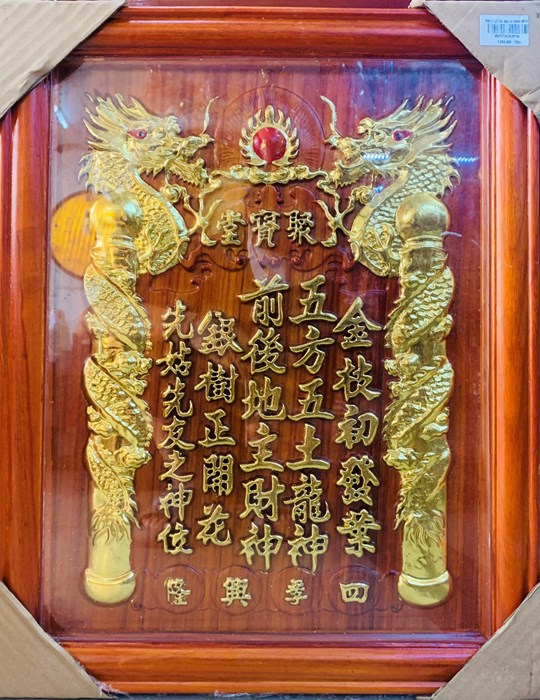 聚寶堂
金枝初發葉
五方五土龍神
前後地主財神
銀樹正開花
先姑先友之神位
四季興隆